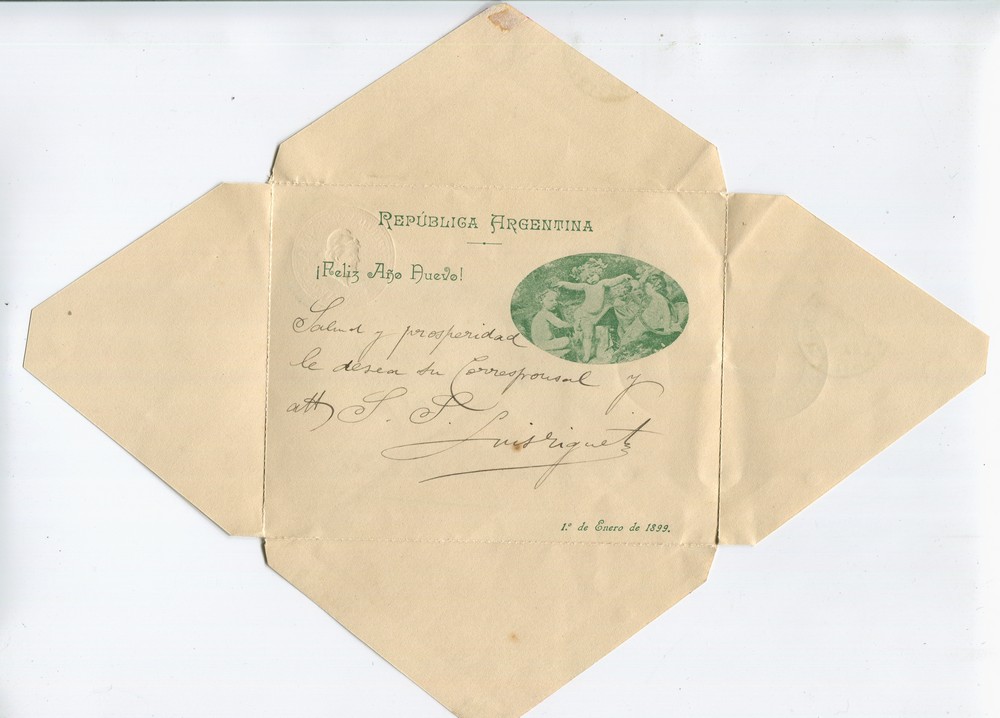 REPÚBLICA ARGENTINA
¡Feliz Año Nuevo!
Salud y prosperidad
le desea su Corresponsal y
att S. S.
Luis Riguet
1.º de Enero de 1899.